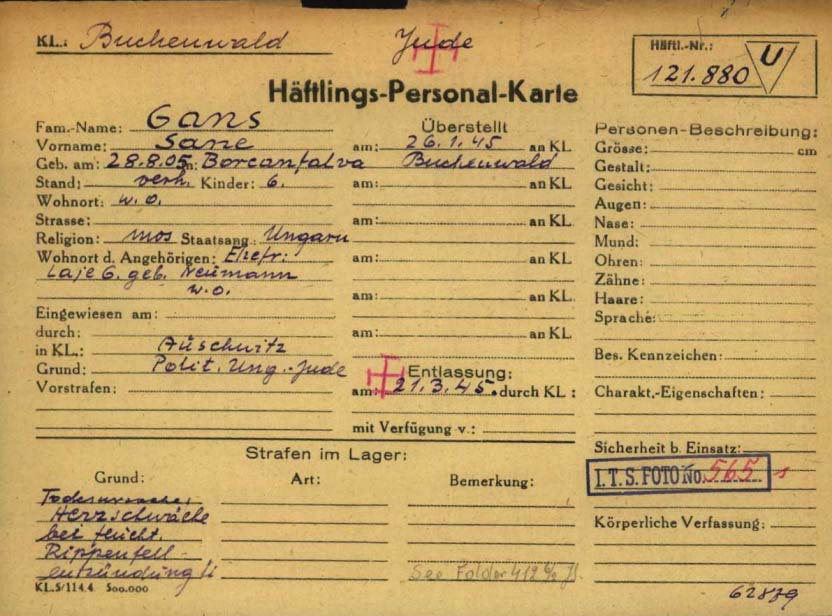 KL.: Buchenwald Jude
Häftl.-Nr.: 121.880 U
Häftlings-Personal-Karte
Fam.-Name: Gans
Vorname: Sane
Geb. am: 28.8.05 in: Borcanfalva
Stand: verh. Kinder: 6.
Wohnort: w.o.
Strasse:
Religion: mos Staatsang.: Ungarn
Wohnort d. Angehörigen: Ehefr:
Laje G. geb. Neumann
w.o.
Eingewiesen am:
durch:
in KL.: Auschwitz
Grund: Polit. Ung.-Jude
Vorstrafen:
Überstellt
am: 26.1.45 an KL
Buchenwald
am: an KL
am: an KL
am: an KL
am: an KL
am: an KL
Entlassung:
am: 21.3.45. durch KL:
mit Verfügung v.:
Personen-Beschreibung:
Grösse: cm
Gestalt:
Gesicht:
Augen:
Nase:
Mund:
Ohren:
Zähne:
Haare:
Sprache:
Bes. Kennzeichen:
Charakt.-Eigenschaften:
Sicherheit b. Einsatz:
I.T.S. FOTO No. 565
Körperliche Verfassung:
Strafen im Lager:
Grund: Art: Bemerkung:
Todesursache:
Herzschwäche
bei feucht.
Rippenfell-
entzündung li
See Folder
KL.5/11 4.4 500.000
62879